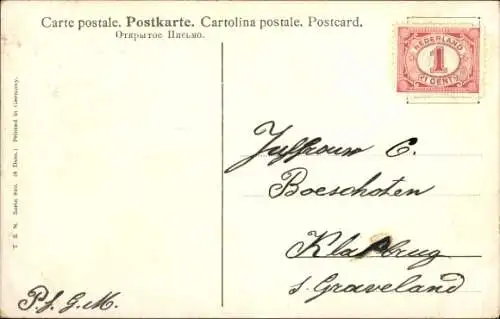 Carte postale. Postkarte. Cartolina postale. Postcard.
Открытое Письмо.
NEDERLAND
1
1 CENT
Juffrouw C.
Boeschoten
Klapbrug
s. Graveland
P.f. G.M.
T. S. N. Serie 980. (6 Dess.) Printed in Germany.